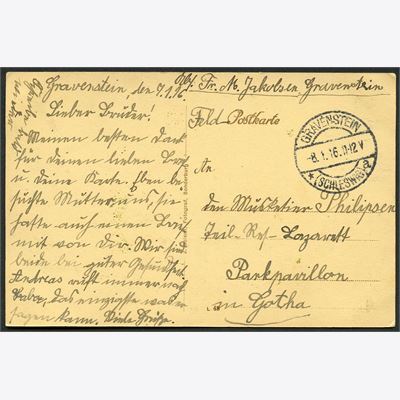 Gravenstein, den 7.1.16.
Lieber Bruder!
Meinen besten Dank
für deinen lieben Brief
u. deine Karte. Eben be-
suchte Mutter uns, sie
hatte auch einen Brief
mit von dir. Wir sind
beide bei guter Gesundheit.
Andreas ruft immer nach
Papa, das einzigste was er
sagen kann. Viele Grüße.
Fr. M. Jakobsen Gravenstein
Feld-Postkarte
GRAVENSTEIN
-8.1.16. 11-12 V
* (SCHLESWIG)
An
den Musketier Philipsen
Teil. Res-Lazarett
Parkpavillon
in Gotha